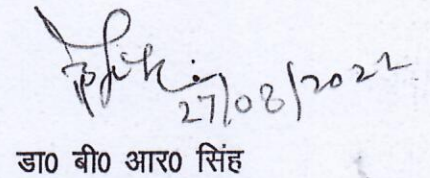 27/08/2022
डा0 बी0 आर0 सिंह